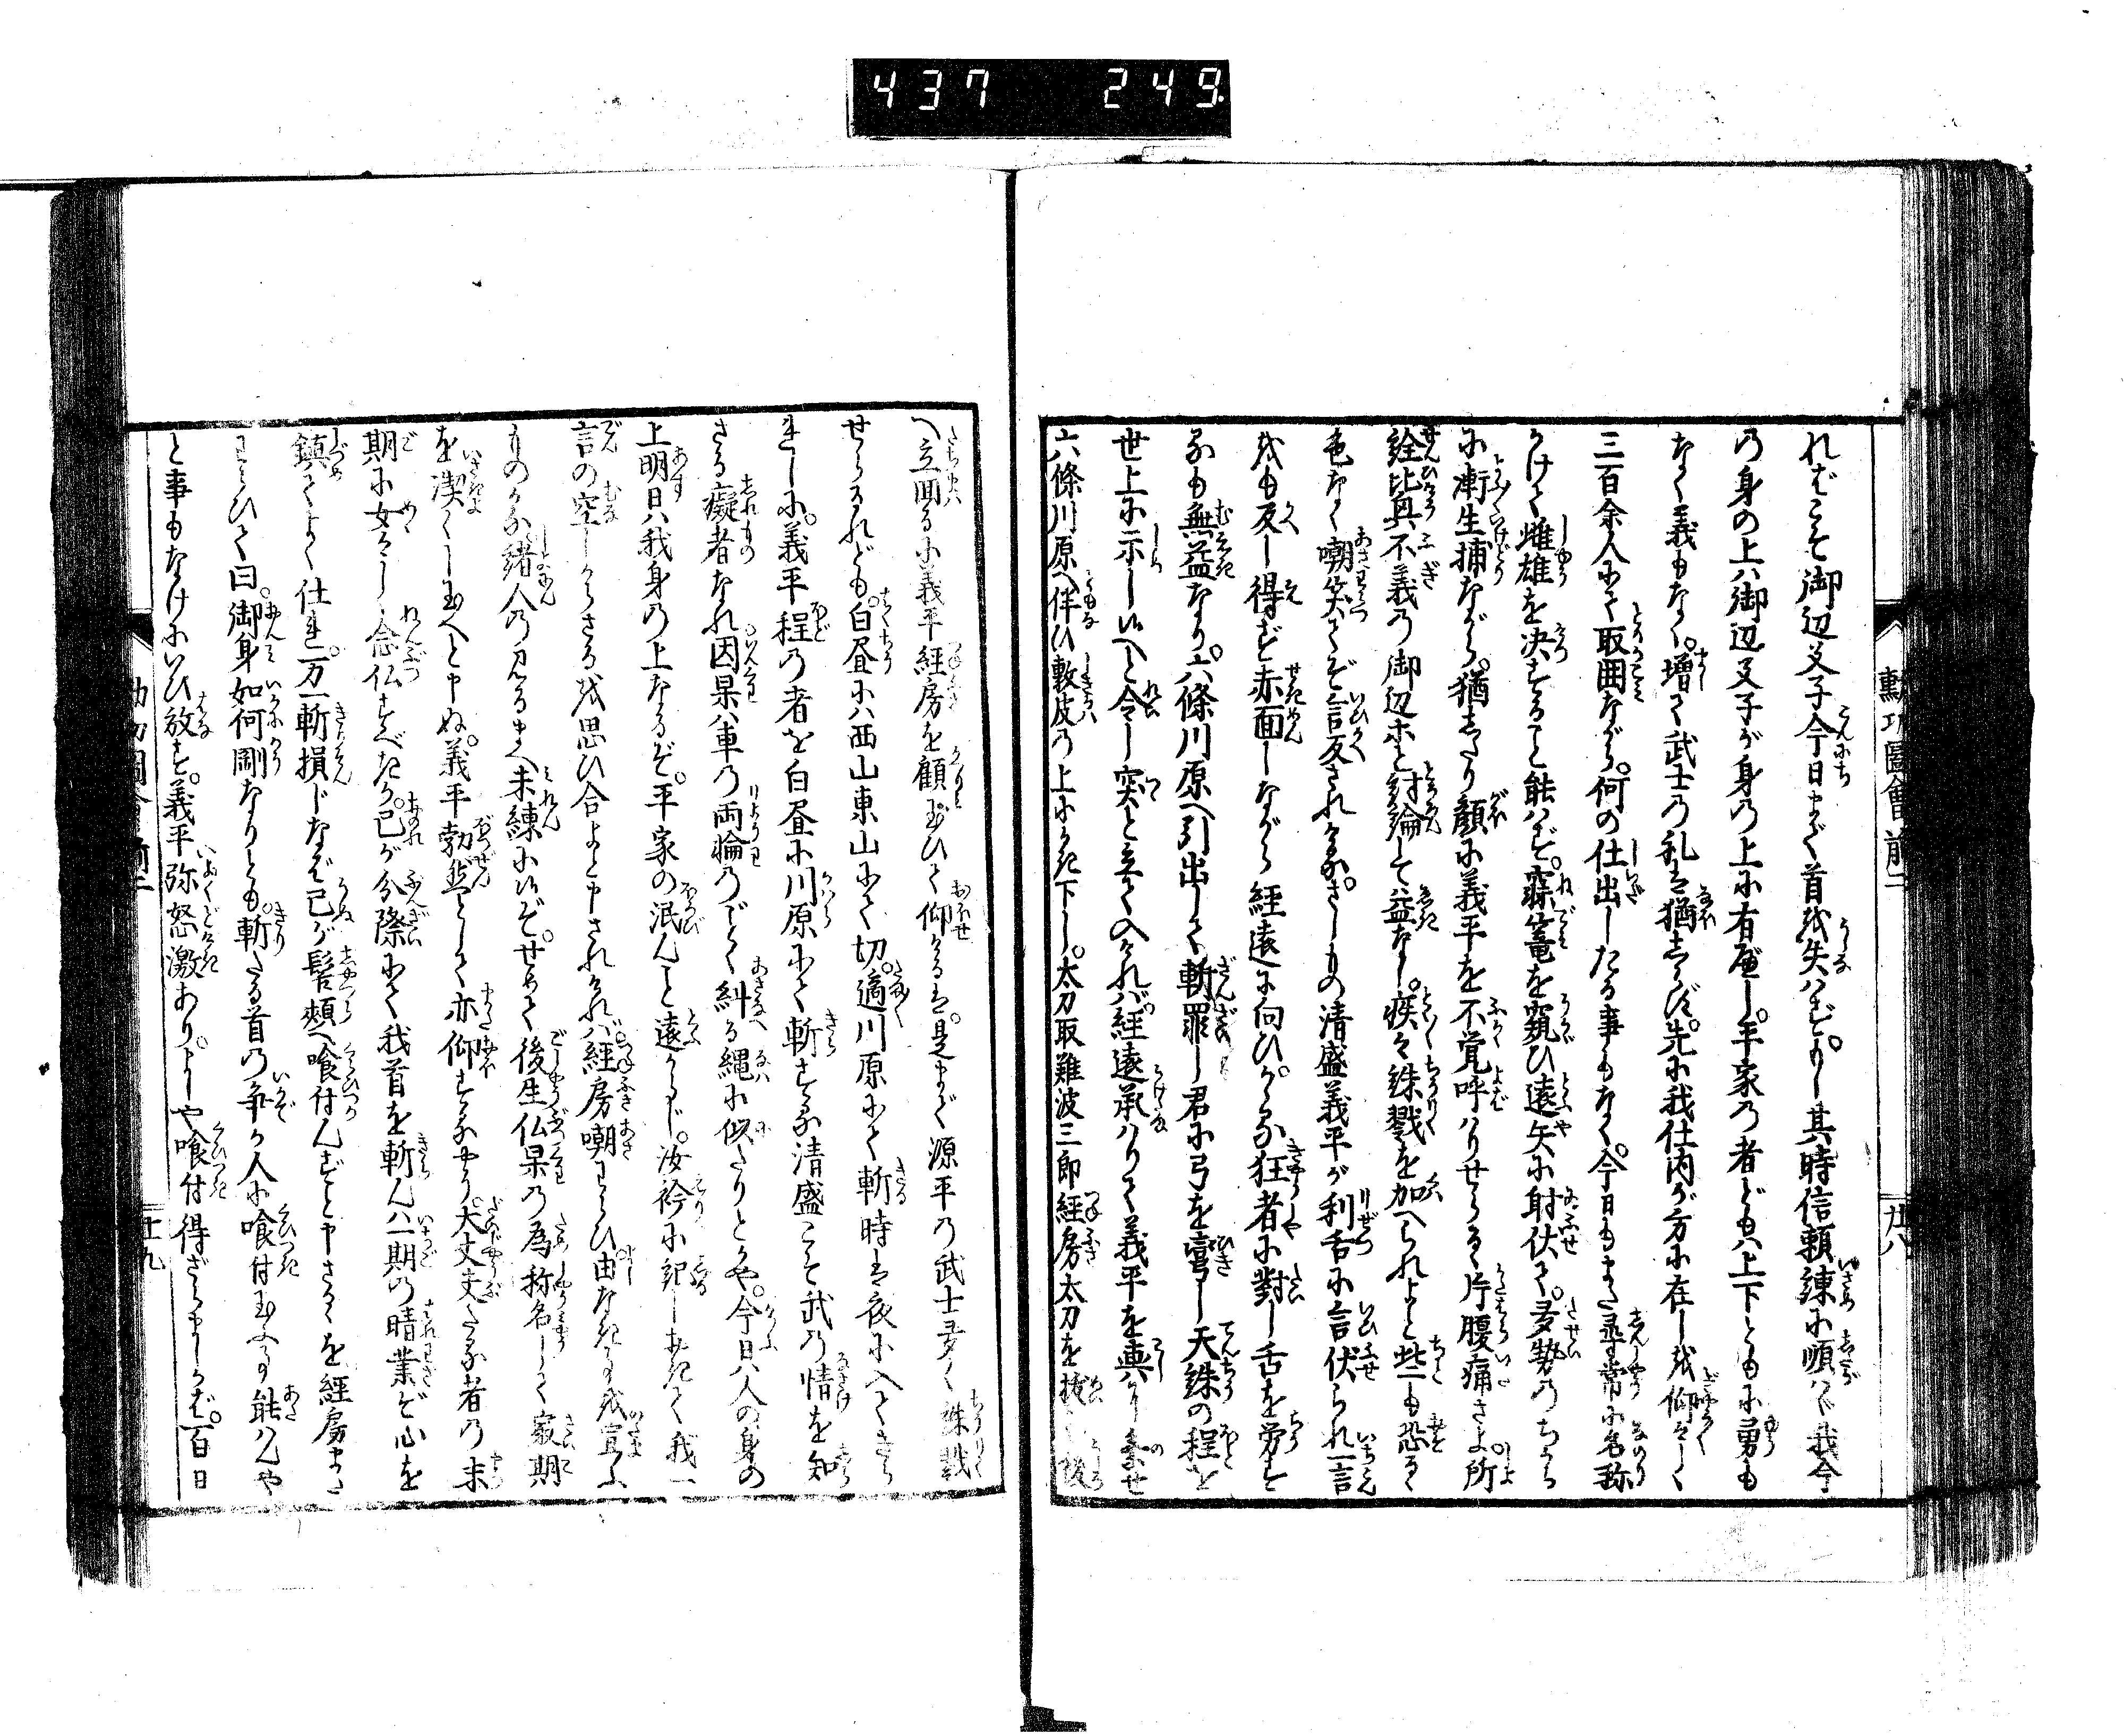 437 249
勲功圖會前二
廿八
れバこそ御辺父子今日まで首を失ハず。もし其時信頼諫に順ハヾ我今
乃身の上ハ御辺父子が身の上に有べし。平家の者どもハ上下ともに勇も
なく義もなし。増て武士の礼ハ猶しらず。先に我仕内が方に在しを仰々しく
三百余人にて取囲ながら。何の仕出したる事もなく。今日もまた尋常に名称
かけて雌雄を决すること能ハず。寐篭を窺ひ遠矢に射伏て。多勢のちから
に漸生捕ながら。猶したり顔に義平を不覚呼ハりせらるゝ片腹痛さよ所
詮比興不義の御辺等と討論して益なし。疾々誅戮を加へられよと些も恐るゝ
色なく嘲笑てぞ言反されける。さしもの清盛義平が利舌に言伏られ一言
をも反し得ず赤面しながら経遠に向ひ。かゝる狂者に對し舌を労す
るも無益なり。六條川原へ引出して斬罪し君に弓を彎し天誅の程を
世上に示し候へと令し突と立て入ければ。経遠承ハりて義平を輿にのせ
六條川原へ伴ひ敷皮の上にかき下し。太刀取難波三郎経房太刀を抜て後
へ立囘るに義平経房を顧玉ひて仰けるハ。是まで源平の武士多く誅戮
せらるれども。白昼にハ西山東山にて切。適川原にて斬時ハ夜に入てきら
れしに。義平程の者を白昼に川原にて斬する清盛こそ武の情を知
ざる癡者なれ因果ハ車の両輪のごとく糾る縄に似たりとかや。今日ハ人の身の
上明日ハ我身の上なるぞ。平家の泯んこと遠からじ。汝衿に記しおきて我一
言の空しからざるを思ひ合よと申されければ。経房嘲わらひ由なき事を宣ふ
ものかな。緒人の見るまへ未練に候ぞ。せめて後生仏果の為称名して寂期
を潔くし玉へと申ぬ。義平勃然として亦仰するやう。大丈夫たる者の末
期に女々しく念仏すべきか。己が分際にて我首を斬んハ一期の晴業ぞ心を
鎮てよく仕れ。万一斬損じなバ己が髻頬へ喰付んずと申さるゝを経房まさ
わらひて曰。御身如何剛なりとも。斬たる首の争か人に喰付玉ふ事能ハんや
と事もなげにいひ放す。義平弥怒激あり。よしや喰付得ざらましかバ。百日
廿九